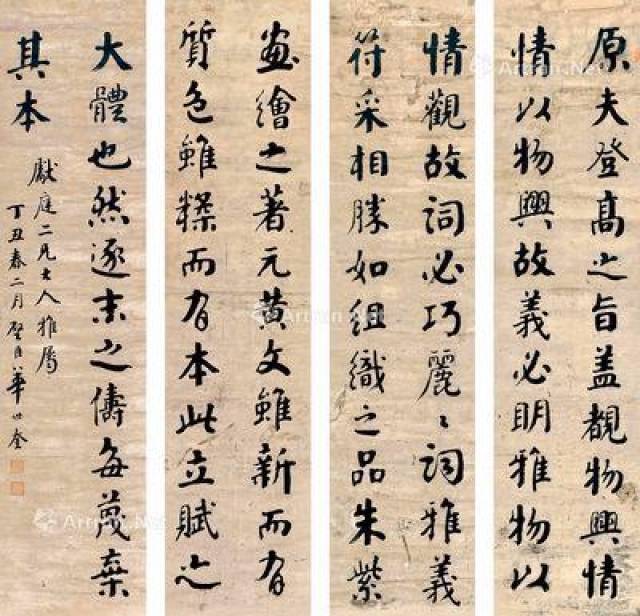 原夫登高之旨盖覩物興情
情以物興故義必明雅物以
情觀故詞必巧麗〻詞雅義
符采相勝如組織之品朱紫
畫繪之著元黄文雖新而有
質色雖糅而有本此立賦之
大體也然逐末之儔每蔑棄
其本
獻庭二兄大人雅屬
丁丑春二月 華世奎
Artron.Net
Artron.Net
Artron.Net
Artron.Net